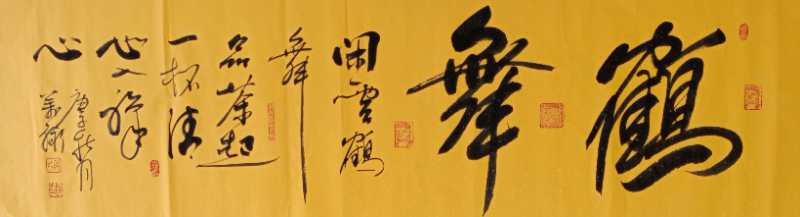 鶴
舞
闲雲鶴
舞
品茶起
一杯清
心入禅
心
庚子秋月